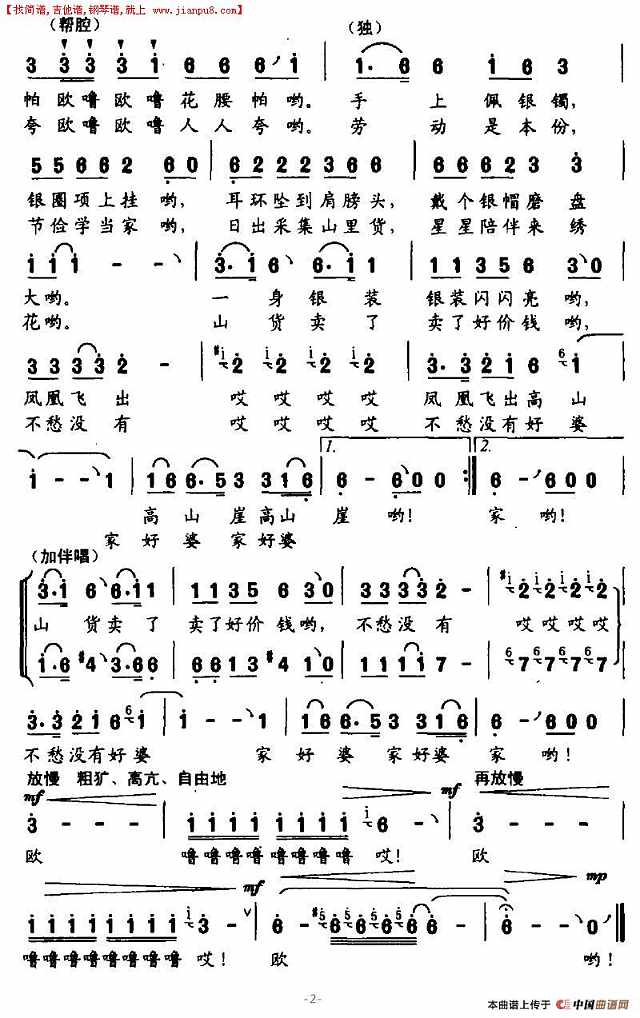 【找简谱,吉他谱,钢琴谱,就上 www.jianpu8.com】
(帮腔) (独)
3 3 3 3 1 6 6 6·1 3·1 6 6 1 6 3
帕欧噜欧噜花腰帕哟。手上佩银镯,
夸欧噜欧噜人人夸哟。劳动是本份,
5 5 6 6 2 6 0 6 2 2 2 3 6 6 2 2 2 6 2 3 3
银圈项上挂哟,耳环坠到肩膀头,戴个银帽磨盘
节俭学当家哟,日出采集山里货,星星陪伴来绣
1 1 1 - - 3·1 6 6·1 1 1 1 3 5 6 3 0
大哟。一身银装银装闪闪亮哟,
花哟。山货卖了卖了好价钱哟,
3 3 3 3 2 - #1 2 1 2 1 2 1 2 3·3 2 1 6 6 1
凤凰飞出哎哎哎哎凤凰飞出高山
不愁没有哎哎哎哎不愁没有好婆
1. 2.
1 - - 1 1 6 6·5 3 3 1 6 6 - 6 0 0 6 - 6 0 0
高山崖高山崖哟!家哟!
家好婆家好婆
(加伴唱)
3·1 6 6·1 1 1 1 3 5 6 3 0 3 3 3 3 2 - #1 2 1 2 1 2 1 2
山货卖了卖了好价钱哟,不愁没有哎哎哎哎
1·6 #4 3·6 6 6 6 1 3 #4 1 0 1 1 1 1 7 - 6 7 6 7 6 7 6 7
3·3 2 1 6 6 1 1 - - 1 1 6 6·5 3 3 3 1 6 6 - 6 0 0
不愁没有好婆家好婆家好婆家哟!
放慢 粗犷、高亢、自由地 再放慢
mf mf
3 - - - 1 1 1 1 1 1 1 1 1 6 - 3 - - -
欧噜噜噜噜噜噜噜噜哎!欧
mf mp
1 1 1 1 1 1 1 1 1 3 - ∨ 6 - #5 6 5 6 5 6 5 6 6 6 6 - - 0
噜噜噜噜噜噜噜噜哎!欧哟!
-2-
本曲谱上传于 中国曲谱网